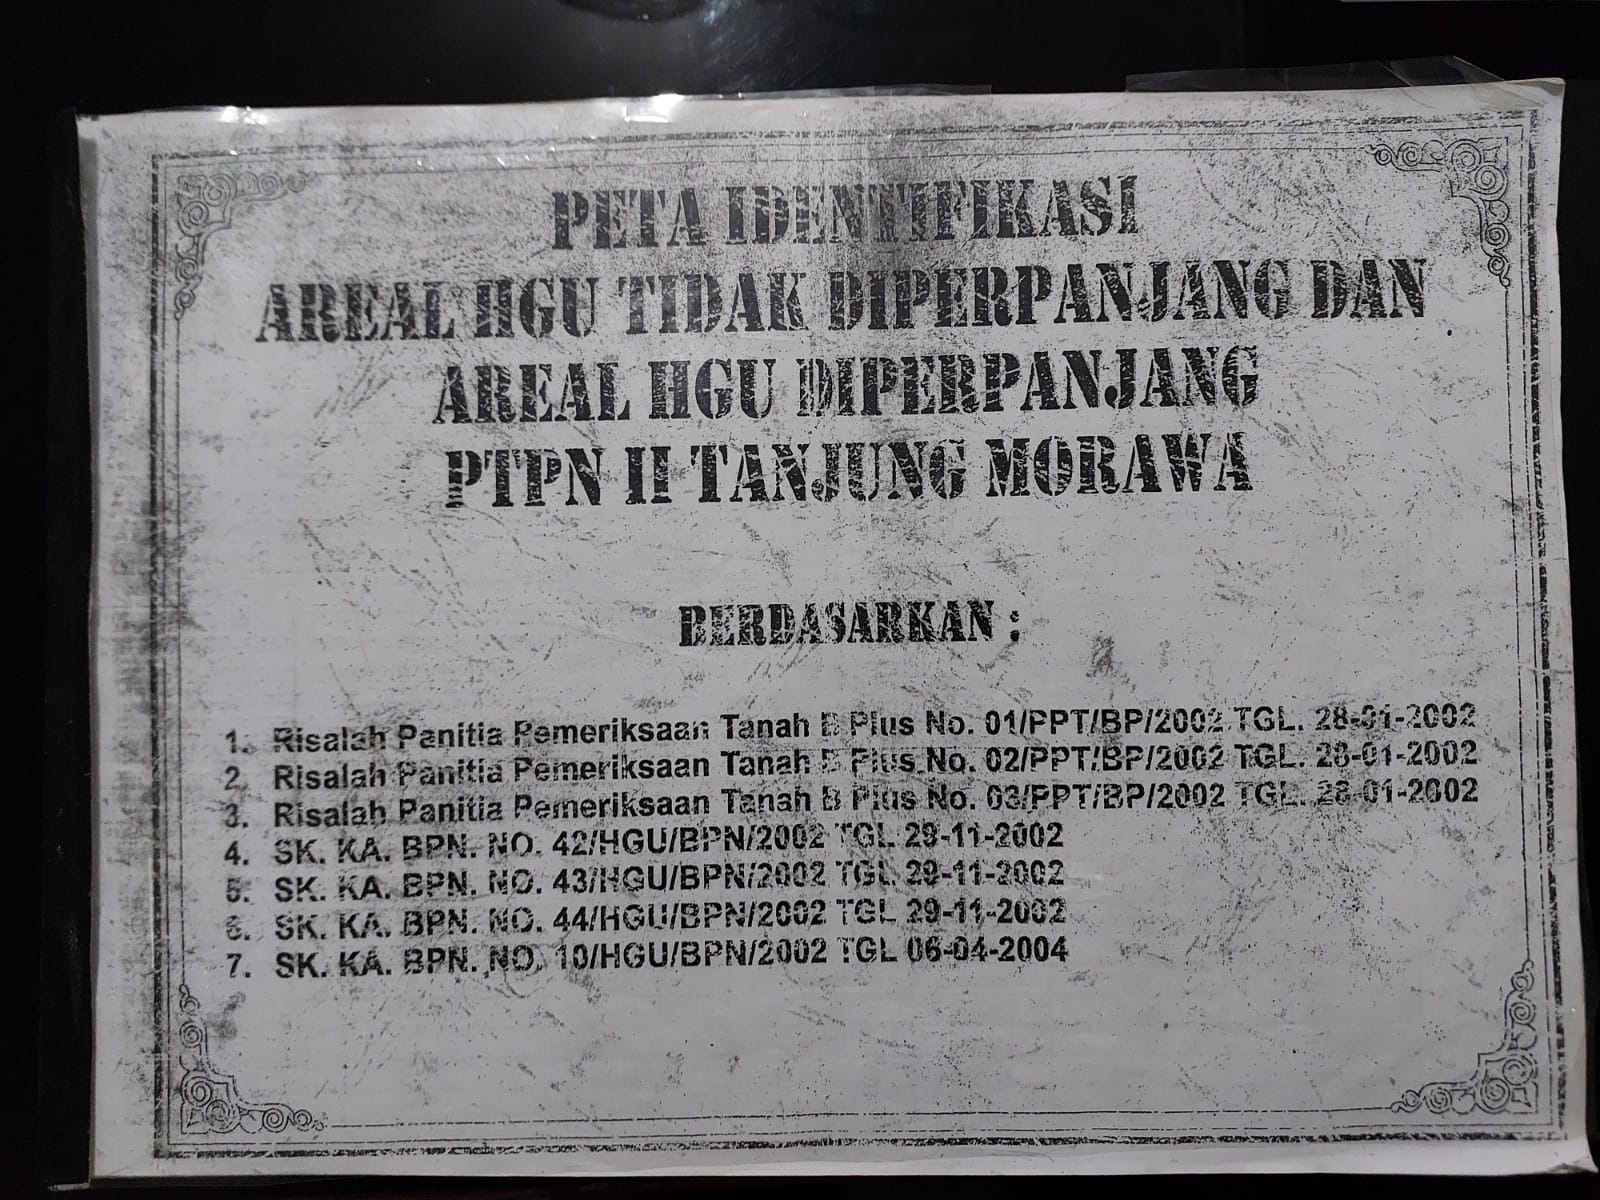 PETA IDENTIFIKASI
AREAL HGU TIDAK DIPERPANJANG DAN
AREAL HGU DIPERPANJANG
PTPN II TANJUNG MORAWA
BERDASARKAN :
1. Risalah Panitia Pemeriksaan Tanah B Plus No. 01/PPT/BP/2002 TGL. 28-01-2002
2. Risalah Panitia Pemeriksaan Tanah B Plus No. 02/PPT/BP/2002 TGL. 28-01-2002
3. Risalah Panitia Pemeriksaan Tanah B Plus No. 03/PPT/BP/2002 TGL. 28-01-2002
4. SK. KA. BPN. NO. 42/HGU/BPN/2002 TGL 29-11-2002
5. SK. KA. BPN. NO. 43/HGU/BPN/2002 TGL 29-11-2002
6. SK. KA. BPN. NO. 44/HGU/BPN/2002 TGL 29-11-2002
7. SK. KA. BPN. NO. 10/HGU/BPN/2002 TGL 06-04-2004